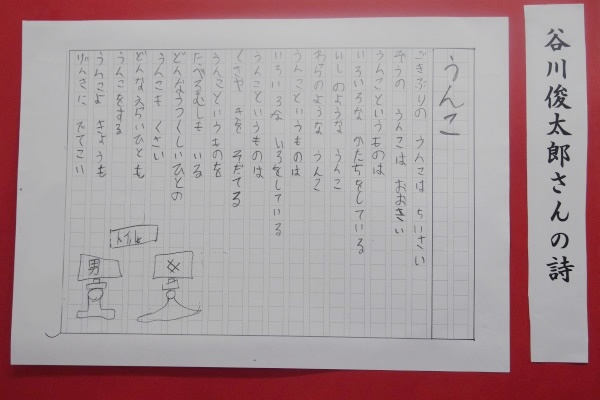 谷川俊太郎さんの詩
うんこ
ごきぶりの うんこは ちいさい
ぞうの うんこは おおきい
うんこというものは
いろいろな かたちをしている
いしのような うんこ
わらのような うんこ
うんこというものは
いろいろな いろをしている
うんこというものは
くさや きを そだてる
うんこというものを
たべるむしも いる
どんなうつくしいひとの
うんこも くさい
どんなえらいひとも
うんこをする
うんこよ きょうも
げんきに でてこい
トイレ
女
男